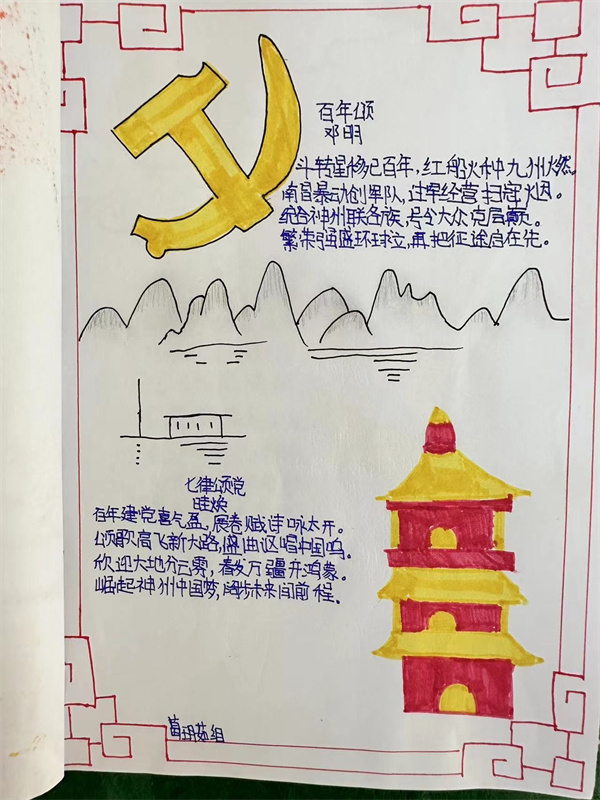 百年颂
邓明
斗转星移已百年,红船火种九州燃。
南昌暴动创军队,过军经营扫寇烟。
统合神州联各族,号令大众克后巅。
繁荣强盛环球立,再把征途启在先。
七律颂党
旺焕
百年建党喜气盈,展卷赋诗咏太开。
颂歌高飞新大路,盛曲讴唱中国鸣。
欣迎大地分云霁,春放万疆开鸿蒙。
崛起神州中国梦,阔步未来问前程。
组